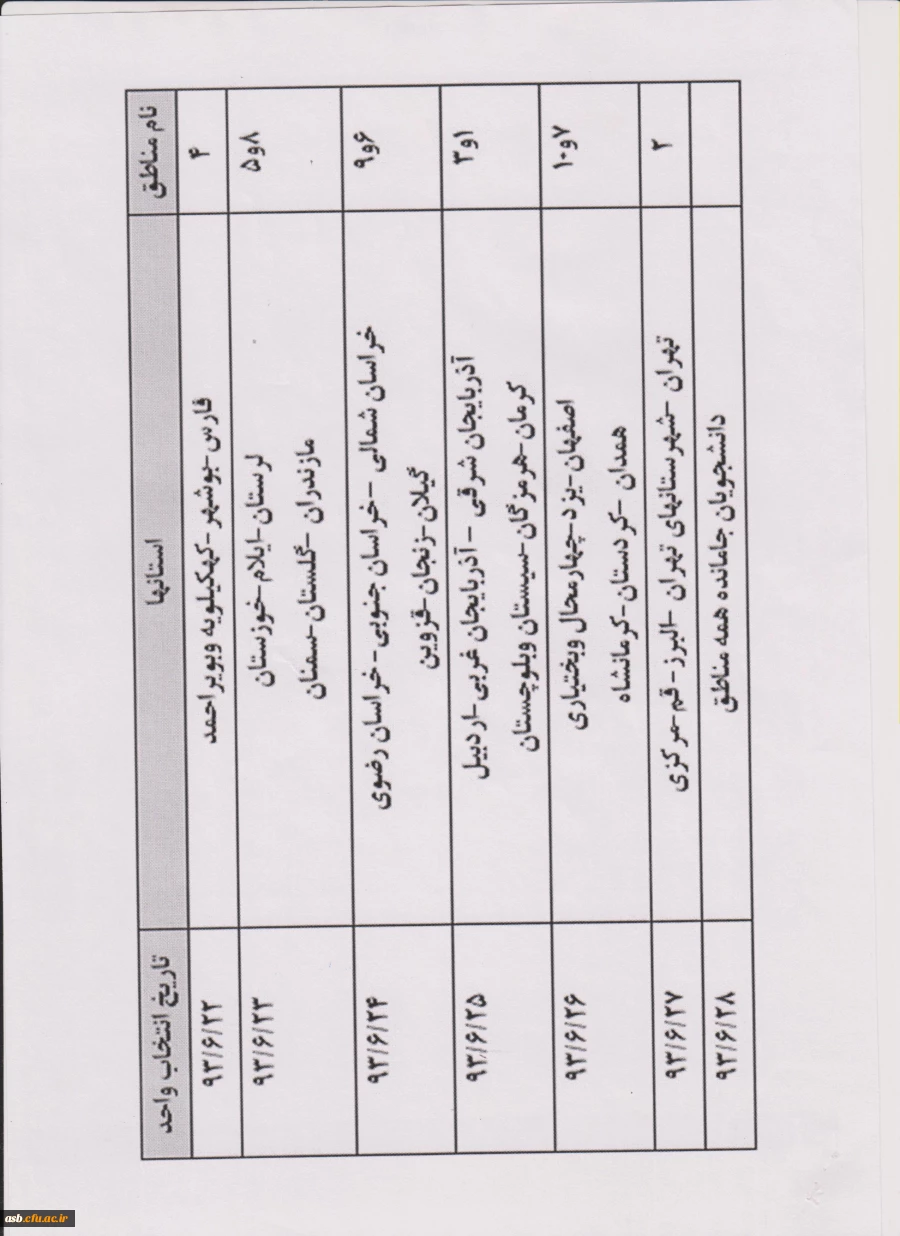 نام مناطق استانها تاریخ انتخاب واحد
۴ فارس-بوشهر-کهکیلویه وبویراحمد ۹۳/۶/۲۲
۸و۵ لرستان-ایلام-خوزستان ۹۳/۶/۲۳
مازندران -گلستان-سمنان
۶و۹ خراسان شمالی -خراسان جنوبی- خراسان رضوی ۹۳/۶/۲۴
گیلان-زنجان-قزوین
۱و۳ آذربایجان شرقی - آذربایجان غربی-اردبیل ۹۳/۶/۲۵
کرمان-هرمزگان-سیستان وبلوچستان
۷و۱۰ اصفهان-یزد-چهارمحال وبختیاری ۹۳/۶/۲۶
همدان -کردستان-کرمانشاه
۲ تهران -شهرستانهای تهران -البرز- قم-مرکزی ۹۳/۶/۲۷
دانشجویان جامانده همه مناطق ۹۳/۶/۲۸
asb.cfu.ac.ir